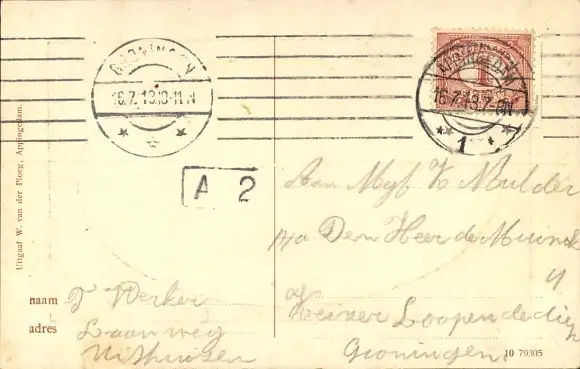 GRONINGEN
16.7.13.10-11 N
GRONINGEN
16.7.13.7-8N
1
1
A 2
Aan Mejf K Mulder
p/a Den Heer de Muinck
Keizer Loopendediep
Groningen
Uitgaaf W. van der Ploeg, Appingedam.
naam J Werker
adres Laanweg
Uithuizen
10 79305